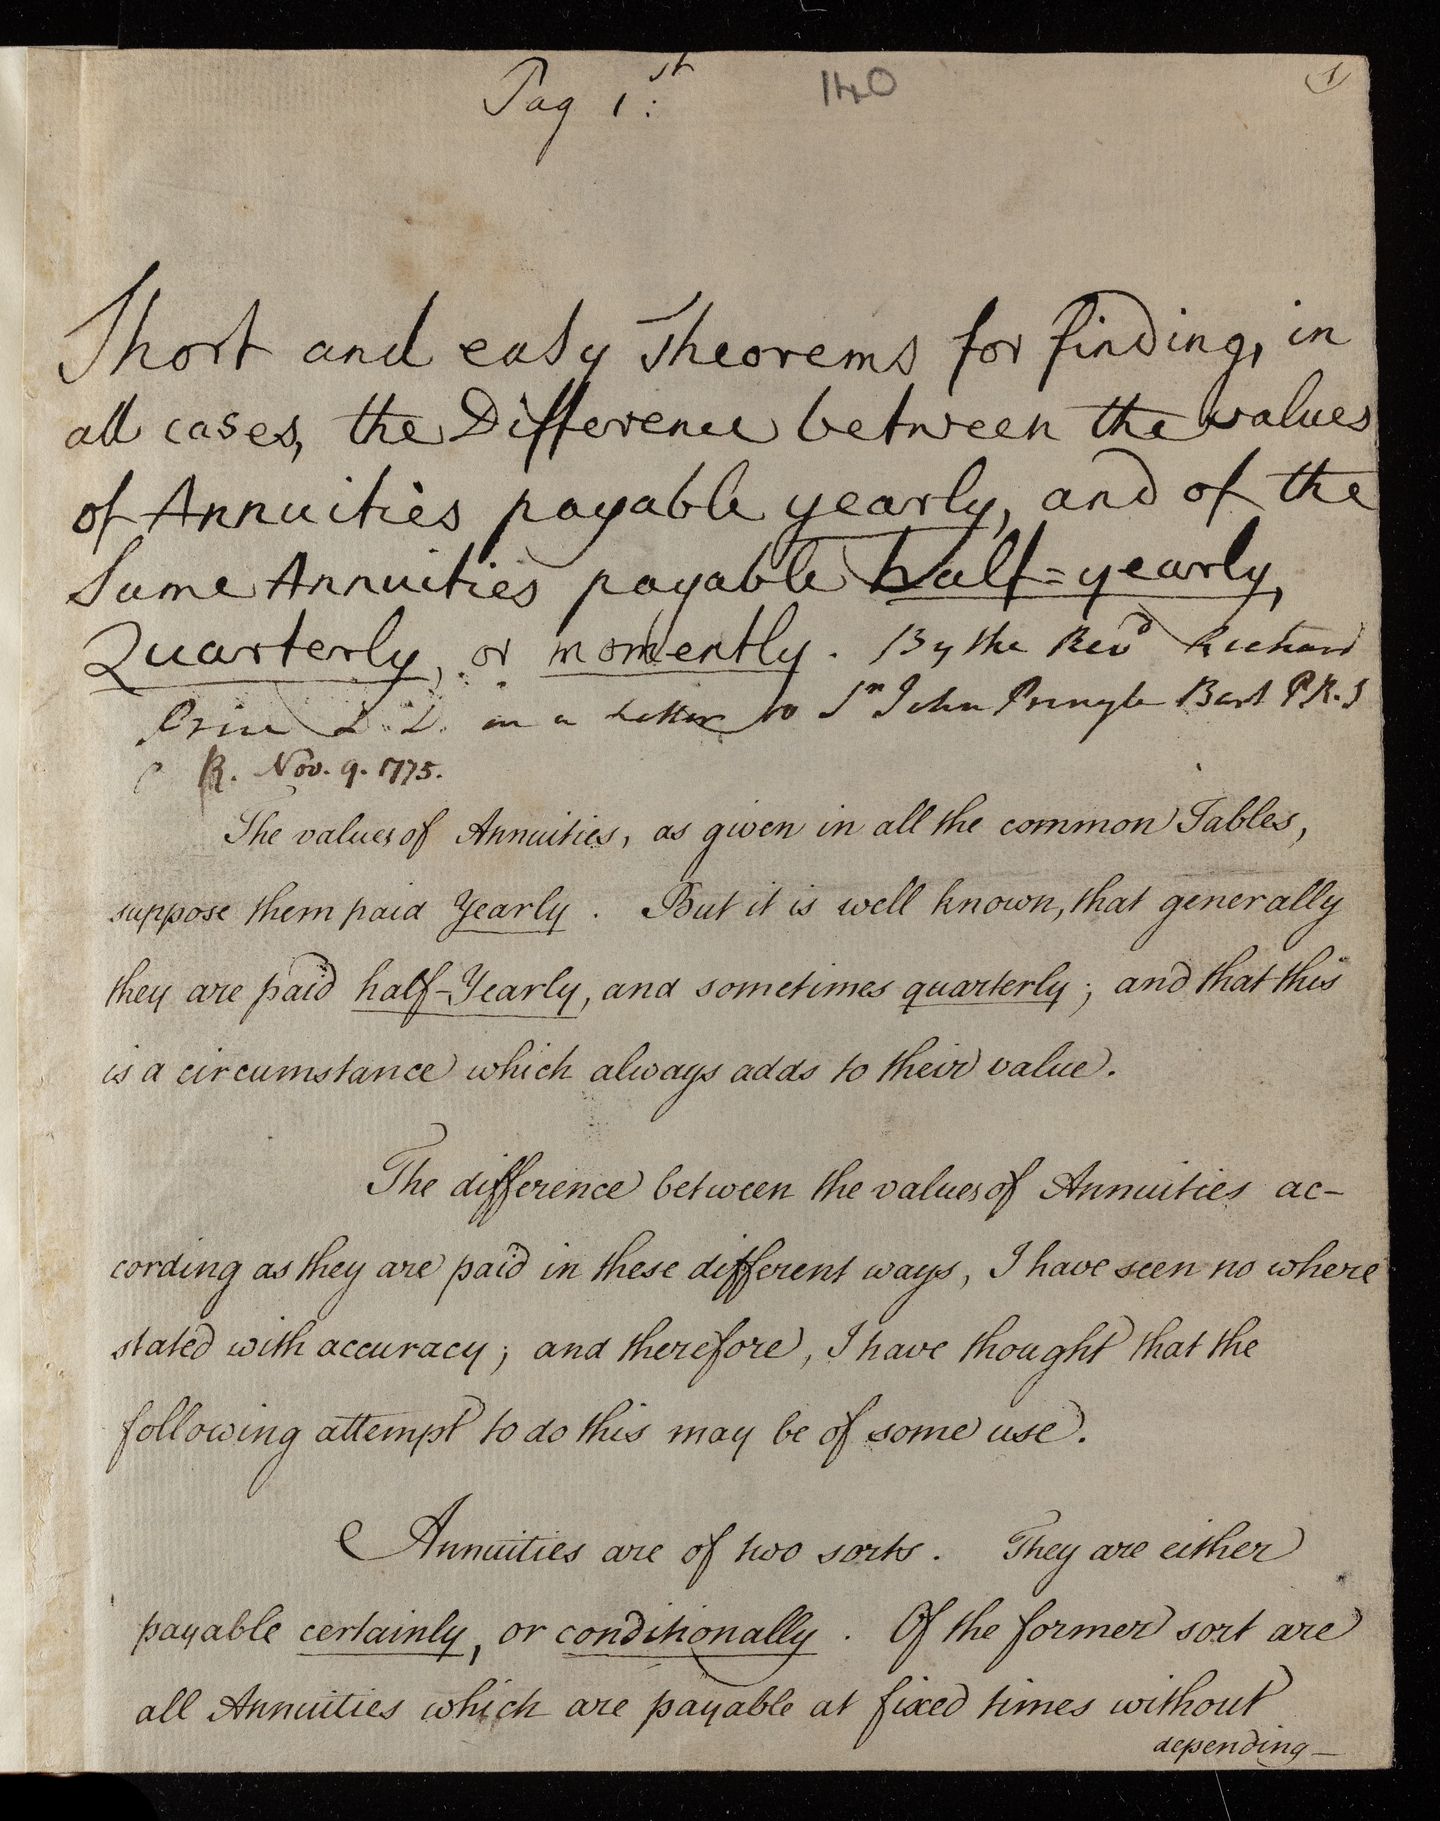 Pag 1st:
140
1
Short and easy Theorems for finding, in
all cases, the Difference between the values
of Annuities payable yearly, and of the
Same Annuities payable half=yearly,
Quarterly, or momently. By the Revd Richard
Price D. D. in a Letter to Sr John Pringle Bart P.R.S
R. Nov. 9. 1775.
The values of Annuities, as given in all the common Tables,
suppose them paid Yearly. But it is well known, that generally
they are paid half-Yearly, and sometimes quarterly; and that this
is a circumstance which always adds to their value.
The difference between the values of Annuities ac-
cording as they are paid in these different ways, I have seen no where
stated with accuracy; and therefore, I have thought that the
following attempt to do this may be of some use.
Annuities are of two sorts. They are either
payable certainly, or conditionally. Of the former sort are
all Annuities which are payable at fixed times without
depending-